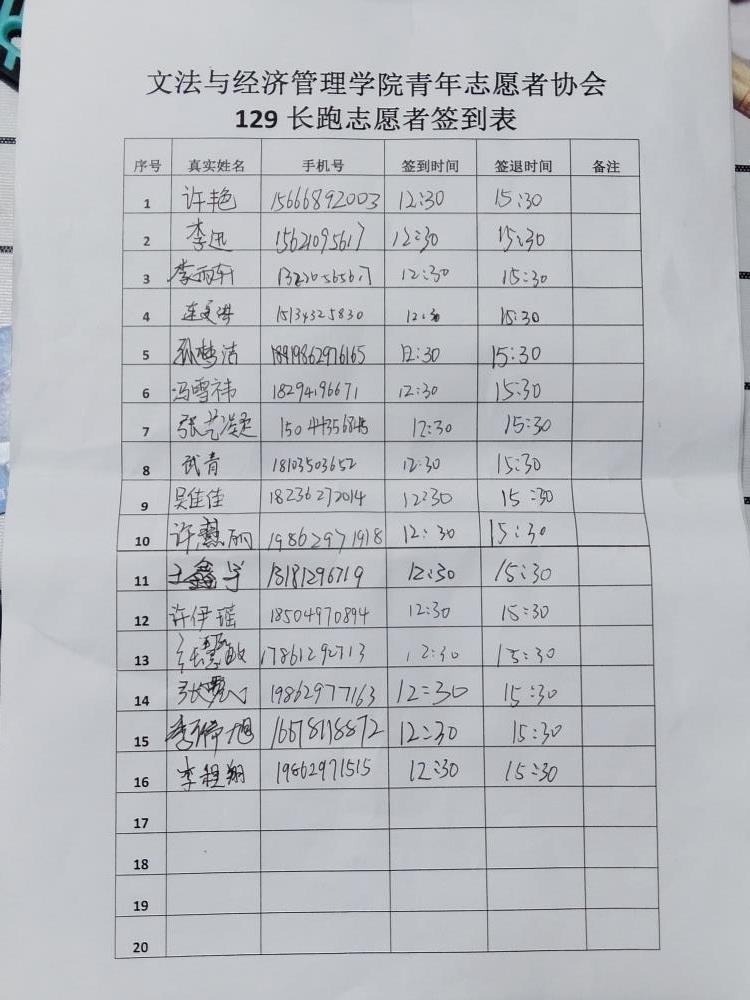 文法与经济管理学院青年志愿者协会
129 长跑志愿者签到表
序号 真实姓名 手机号 签到时间 签退时间 备注
1 许艳 15666892003 12:30 15:30
2 李迅 15621095617 12:30 15:30
3 12:30 15:30
4 15134325830 12:30 15:30
5 孙梦洁 12:30 15:30
6 冯雪祎 18294196671 12:30 15:30
7 12:30 15:30
8 武青 18103503652 12:30 15:30
9 吴佳佳 18236272014 12:30 15:30
10 许慧丽 19862971918 12:30 15:30
11 王鑫宇 13181296719 12:30 15:30
12 许伊瑶 18504970894 12:30 15:30
13 17861292713 12:30 15:30
14 19862977163 12=30 15:30
15 16678118872 12:30 15:30
16 李程翔 19862971515 12:30 15:30
17
18
19
20